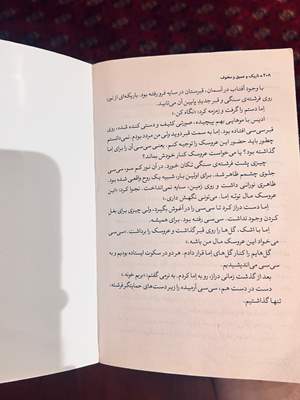 ۲۰۸ ● تاریک و عمیق و مخوف
با وجود آفتاب در آسمان، قبرستان در سایه فرو رفته بود. باریکه‌ای از نور،
روی فرشته‌ی سنگی و قبر جدید پایین آن می‌تابید.
اما دستم را گرفت و زمزمه کرد: «نگاه کن.»
ادیس با موهایی بهم پیچیده، صورتی کثیف و دستی کنده شده، روی
قبر سی‌سی افتاده بود. اما به سمت قبر دوید ولی من مردد بودم. نمی‌دانستم
چطور باید حضور این عروسک را توجیه کنم. یعنی سی‌سی آن را برای اما
گذاشته بود؟ یا می‌خواست عروسک کنار خودش بماند؟
چیزی پشت فرشته‌ی سنگی تکان خورد. در آن نور کم سو، سی‌سی
جلوی چشمم ظاهر شد. برای اولین بار، شبیه یک روح واقعی شده بود.
ظاهری نورانی داشت و روی زمین، سایه نمی‌انداخت. نجوا کرد: «این
عروسک مال توئه اما. می‌تونی نگهش داری.»
اما دست دراز کرد تا سی‌سی را در آغوش بگیرد، ولی چیزی برای بغل
کردن وجود نداشت. سی‌سی رفته بود. برای همیشه.
اما با اشک، گل‌ها را روی قبر گذاشت و عروسک را برداشت. «سی‌سی
می‌خواد این عروسک مال من باشه.»
گل‌هایم را کنار گل‌های اما قرار دادم. هر دو در سکوت ایستاده بودیم و به
سی‌سی می‌اندیشیدیم.
بعد از گذشت زمانی دراز، رو به اما کردم. به نرمی گفتم: «بریم خونه.»
دست در دست هم، سی‌سی آرمیده را زیر دست‌های حمایتگر فرشته،
تنها گذاشتیم.